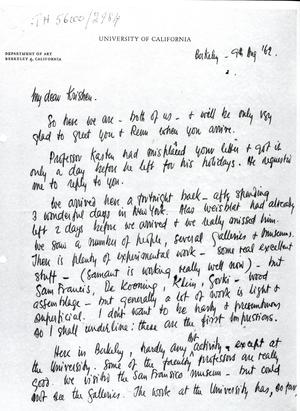 TH 56000/2984
UNIVERSITY OF CALIFORNIA
DEPARTMENT OF ART
BERKELEY 4, CALIFORNIA
Berkeley - 9th Aug '62
My dear Krishen.
So here we are - both of us - & will be only very
glad to greet you & Renu when you arrive.
Professor had misplaced your letter & got it
only a day before he left for his holidays. He requested
me to reply to you.
We arrived here a fortnight back - after spending
3 wonderful days in New York. Alas had already
left 2 days before we arrived & we really missed him.
We saw a number of people, several Galleries & Museums.
There is plenty of experimental work - some real excellent
stuff - (Samant is working really well now) - but
Sam Francis, De Kooning, Klein, Gorki - wood
assemblage - but generally a lot of work is light &
superficial. I don't want to be hasty & presumptuous
so I shall underline: these are the first impressions.
Here in Berkeley, hardly any activity - except at
the University. Some of the faculty professors are really
good. We visited the San Francisco museum - but could
not see the Galleries. The work at the University has, so far